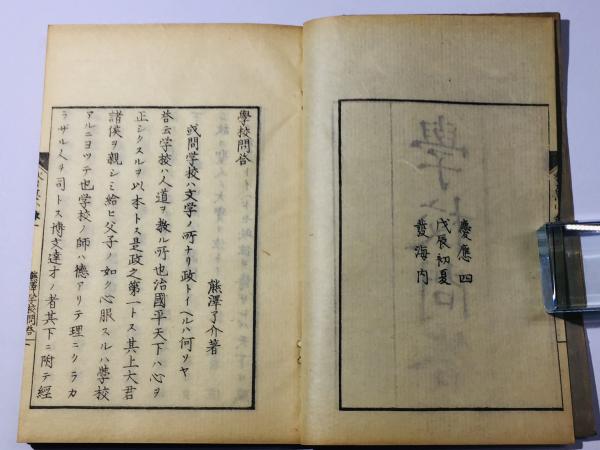 慶應四
戊辰初夏
發海内
學校問答
熊澤了介著
或問学校ハ文学ノ所ナリ政トイヘルハ何ソヤ
答云学校ハ人道ヲ教ル所也治國平天下ハ心ヲ
正シクスルヲ以本トス是政之第一トス其上大君
諸侯ヲ親シミ給ヒ父子ノ如ク心服スルハ學校
アルニヨツテ也学校ノ師ハ德アリテ理ニクラカ
ラザル人ヲ司トス博文達才ノ者其下ニ附テ經
熊澤学校問答